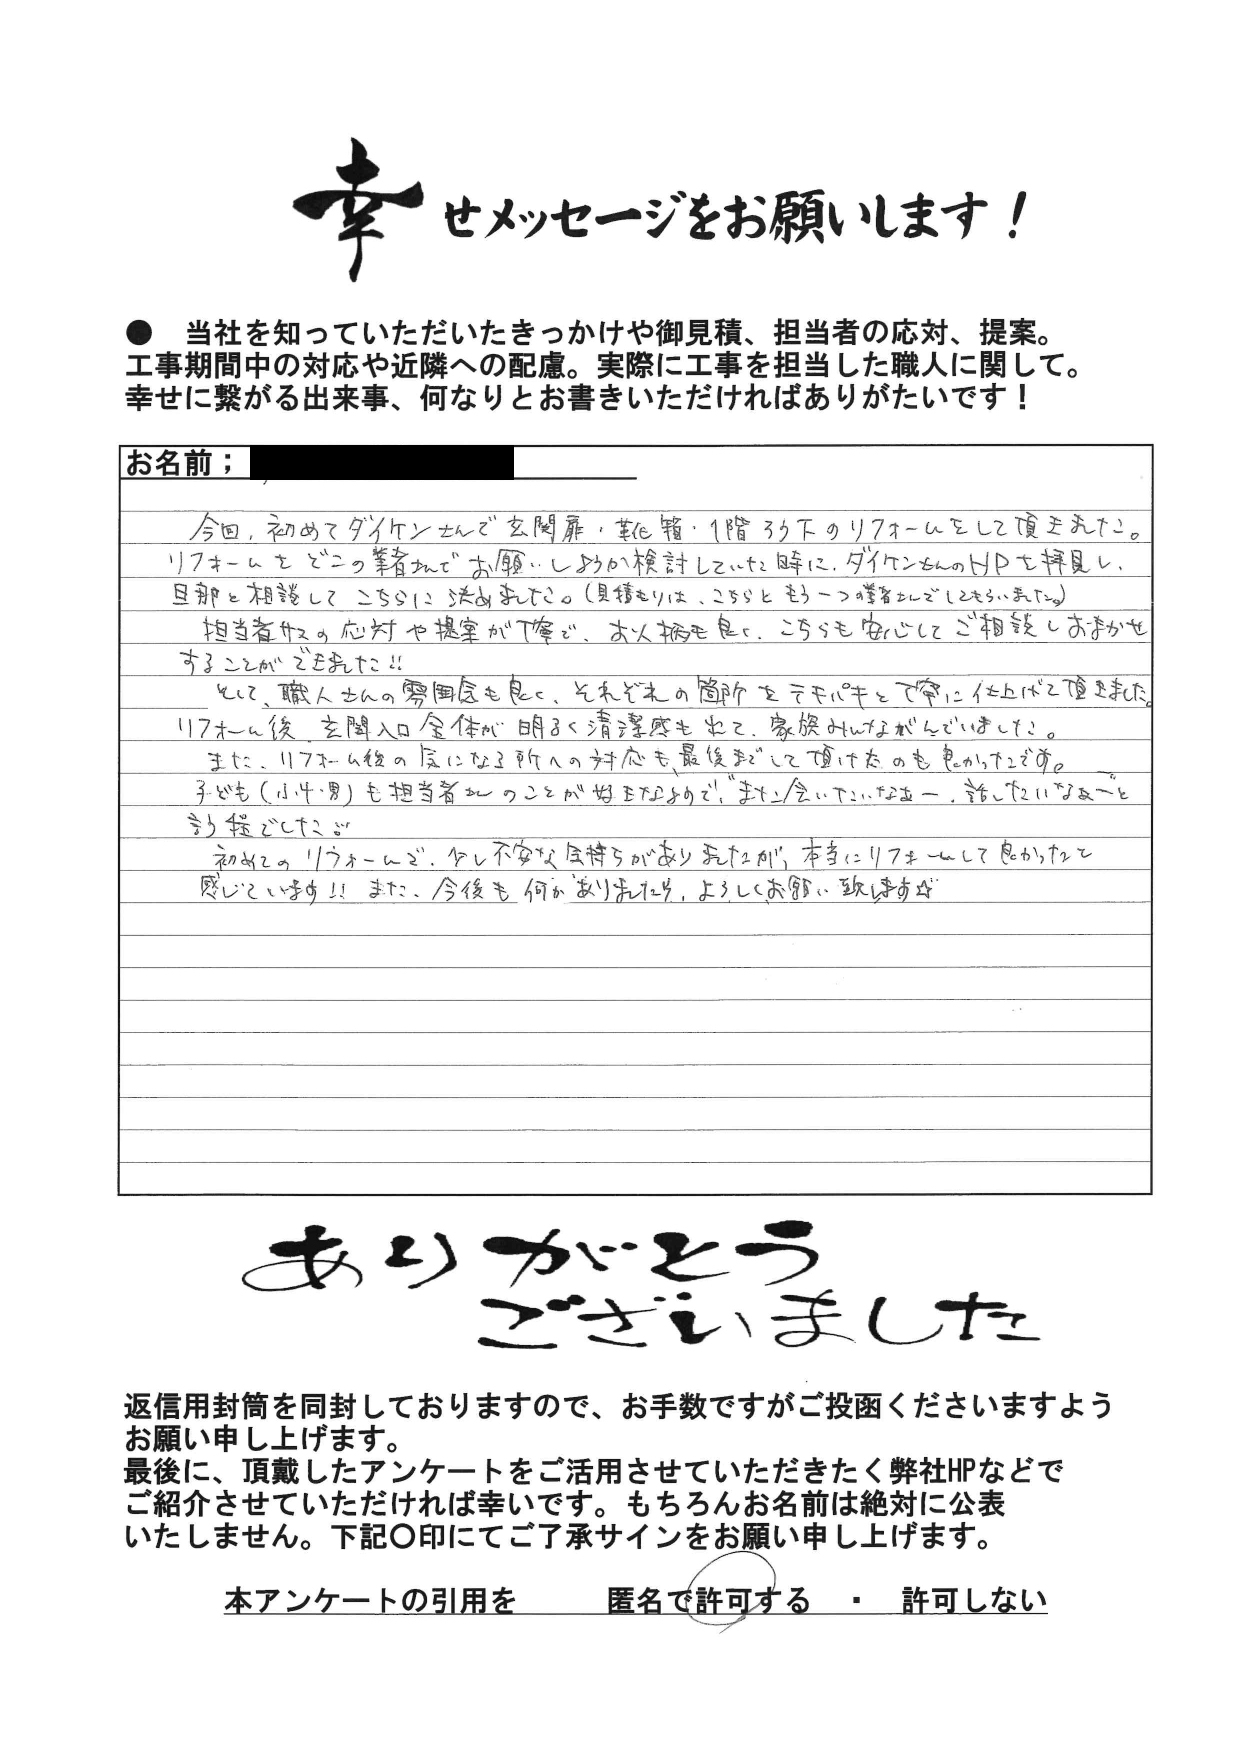 幸せメッセージをお願いします！
●　当社を知っていただいたきっかけや御見積、担当者の応対、提案。
工事期間中の対応や近隣への配慮。実際に工事を担当した職人に関して。
幸せに繋がる出来事、何なりとお書きいただければありがたいです！
お名前；
今回、初めてダイケンさんで玄関扉・靴箱・1階ろう下のリフォームをして頂きました。
リフォームをどこの業者さんでお願いしようか検討していた時に、ダイケンさんのHPを拝見し、
旦那と相談してこちらに決めました。(見積もりは、こちらともう一つの業者さんでしてもらいました。)
担当者サマの応対や提案が丁寧で、お人柄も良く、こちらも安心してご相談しおまかせ
することができました!!
そして、職人さんの雰囲気も良く、それぞれの箇所をテキパキと丁寧に仕上げて頂きました。
リフォーム後、玄関入口全体が明るく清潔感も出て、家族みんな喜んでいました。
また、リフォーム後の気になる所への対応も、最後までして頂けたのも良かったです。
子ども(小4・男)も担当者さんのことが好きなようで、“また会いたいなぁー、話したいなぁ〜”と
言う程でした
初めてのリフォームで、少し不安な気持ちがありましたが、本当にリフォームして良かったと
感じています!! また、今後も何かありましたら、よろしくお願い致します☆
ありがとう
ございました
返信用封筒を同封しておりますので、お手数ですがご投函くださいますよう
お願い申し上げます。
最後に、頂戴したアンケートをご活用させていただきたく弊社HPなどで
ご紹介させていただければ幸いです。もちろんお名前は絶対に公表
いたしません。下記〇印にてご了承サインをお願い申し上げます。
本アンケートの引用を　　　匿名で許可する　・　許可しない